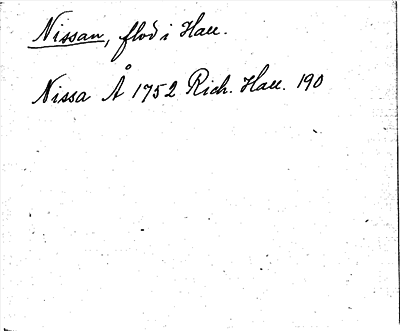 Nissan, flod i Hall.
Nissa Å 1752 Rich. Hall. 190